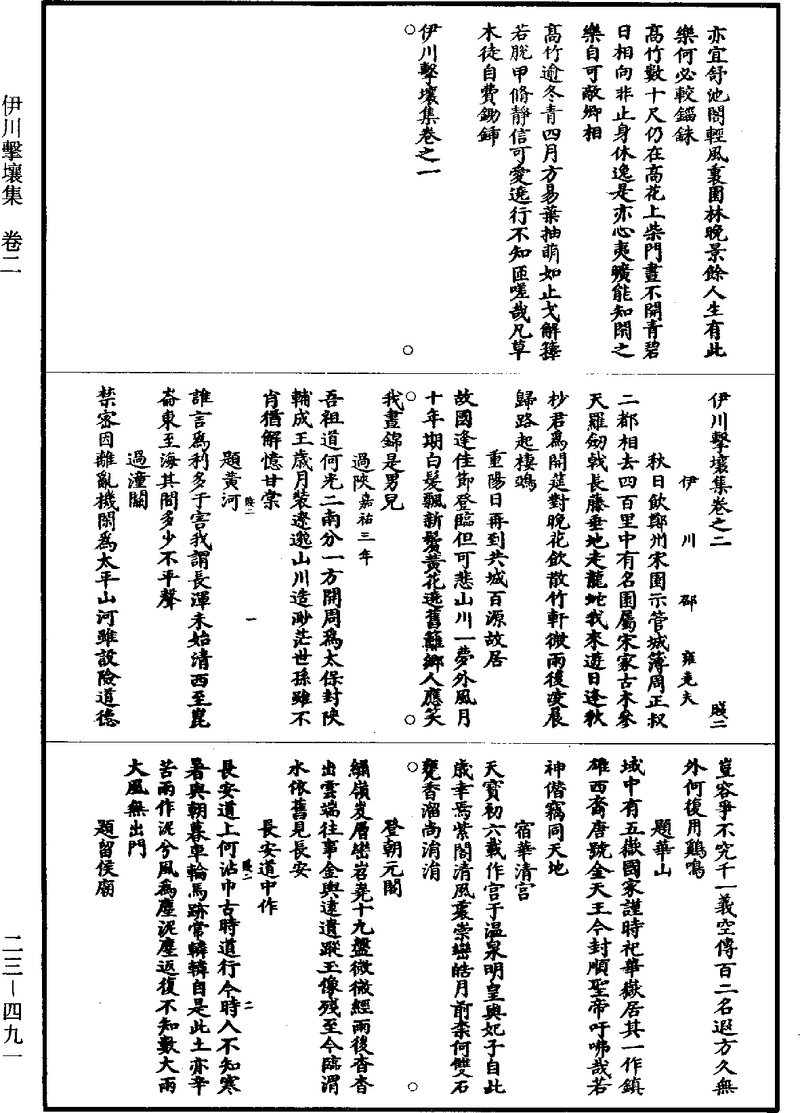 伊川擊壤集 卷二
二三—四九一
亦宜舒池閣輕風裏園林晚景餘人生有此
樂何必較錙銖
高竹數十尺仍在高花上柴門晝不開青碧
日相向非止身休逸是亦心夷曠能知閑之
樂自可敵卿相
高竹逾冬青四月方易葉抽萌如止戈解籜
若脫甲脩靜信可愛遶行不知匝嗟哉凡草
木徒自費鋤鍤
伊川擊壤集卷之一
伊川擊壤集卷之二 賤二
伊川邵雍堯夫
秋日飲鄭州宋園示管城簿周正叔
二都相去四百里中有名園屬宋家古木參
天羅劒戟長藤垂地走龍蛇我來遊日逢秋
杪君為開筵對晚花飲散竹軒微雨後凌晨
歸路起棲鵶
重陽日再到共城百源故居
故國逢佳節登臨但可悲山川一夢外風月
十年期白髮飄新鬢黃花遶舊籬鄉人應笑
我晝錦是男兒
過陝嘉祐三年
吾祖道何光二南分一方開周為太保封陝
輔成王歲月裝遼邈山川造渺茫世孫雖不
肖猶解憶甘棠
賤二 一
題黃河
誰言為利多于害我謂長渾未始清西至崑
崙東至海其間多少不平聲
過潼關
禁密因離亂機閑為太平山河雖設險道德
豈容爭不究千一義空傳百二名遐方久無
外何復用鷄鳴
題華山
域中有五嶽國家謹時祀華嶽居其一作鎮
雄西裔唐號金天王今封順聖帝吁咈哉若
神僭竊同天地
宿華清宮
天寶初六載作宫于温泉明皇與妃子自此
歲幸焉紫閣清風裏崇巒皓月前柰何雙石
甕香溜尚涓涓
登朝元閣
繡嶺岌層巒岩堯十九盤微微經雨後杳杳
出雲端往事金輿遠遺蹤玉像殘至今臨渭
水依舊見長安
長安道中作
賤二 二
長安道上何沾巾古時道行今時人不知寒
暑與朝暮車輪馬跡常轔轔自是此土亦辛
苦雨作泥兮風為塵泥塵返復不知數大雨
大風無出門
題留侯廟